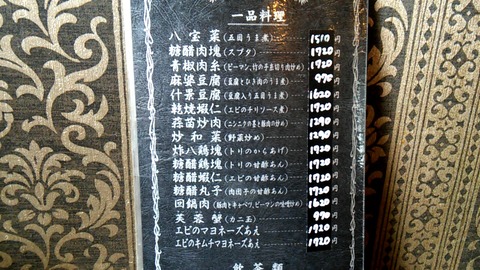 一品料理
八宝菜(五目うま煮) 1510円
糖醋肉塊(スブタ) 1720円
青椒肉糸(ピーマン、竹の子糸切り肉炒め) 1720円
麻婆豆腐(豆腐とひき肉のうま煮) 990円
什景豆腐(豆腐入り五目うま煮) 1620円
乾焼蝦仁(エビのチリソース煮) 1920円
蒜苗炒肉(ニンニクの茎と豚肉の炒め) 1290円
炒和菜(野菜炒め) 1290円
炸八鶏塊(トリのからあげ) 1720円
糖醋鶏塊(トリの甘酢あん) 1720円
糖醋蝦仁(エビの甘酢あん) 1920円
糖醋丸子(肉団子の甘酢あん) 1720円
回鍋肉(豚肉とキャベツ、ピーマンの味噌炒め) 1620円
芙蓉蟹(カニ玉) 990円
エビのマヨネーズあえ 1920円
エビのキムチマヨネーズあえ 1920円
飲茶類